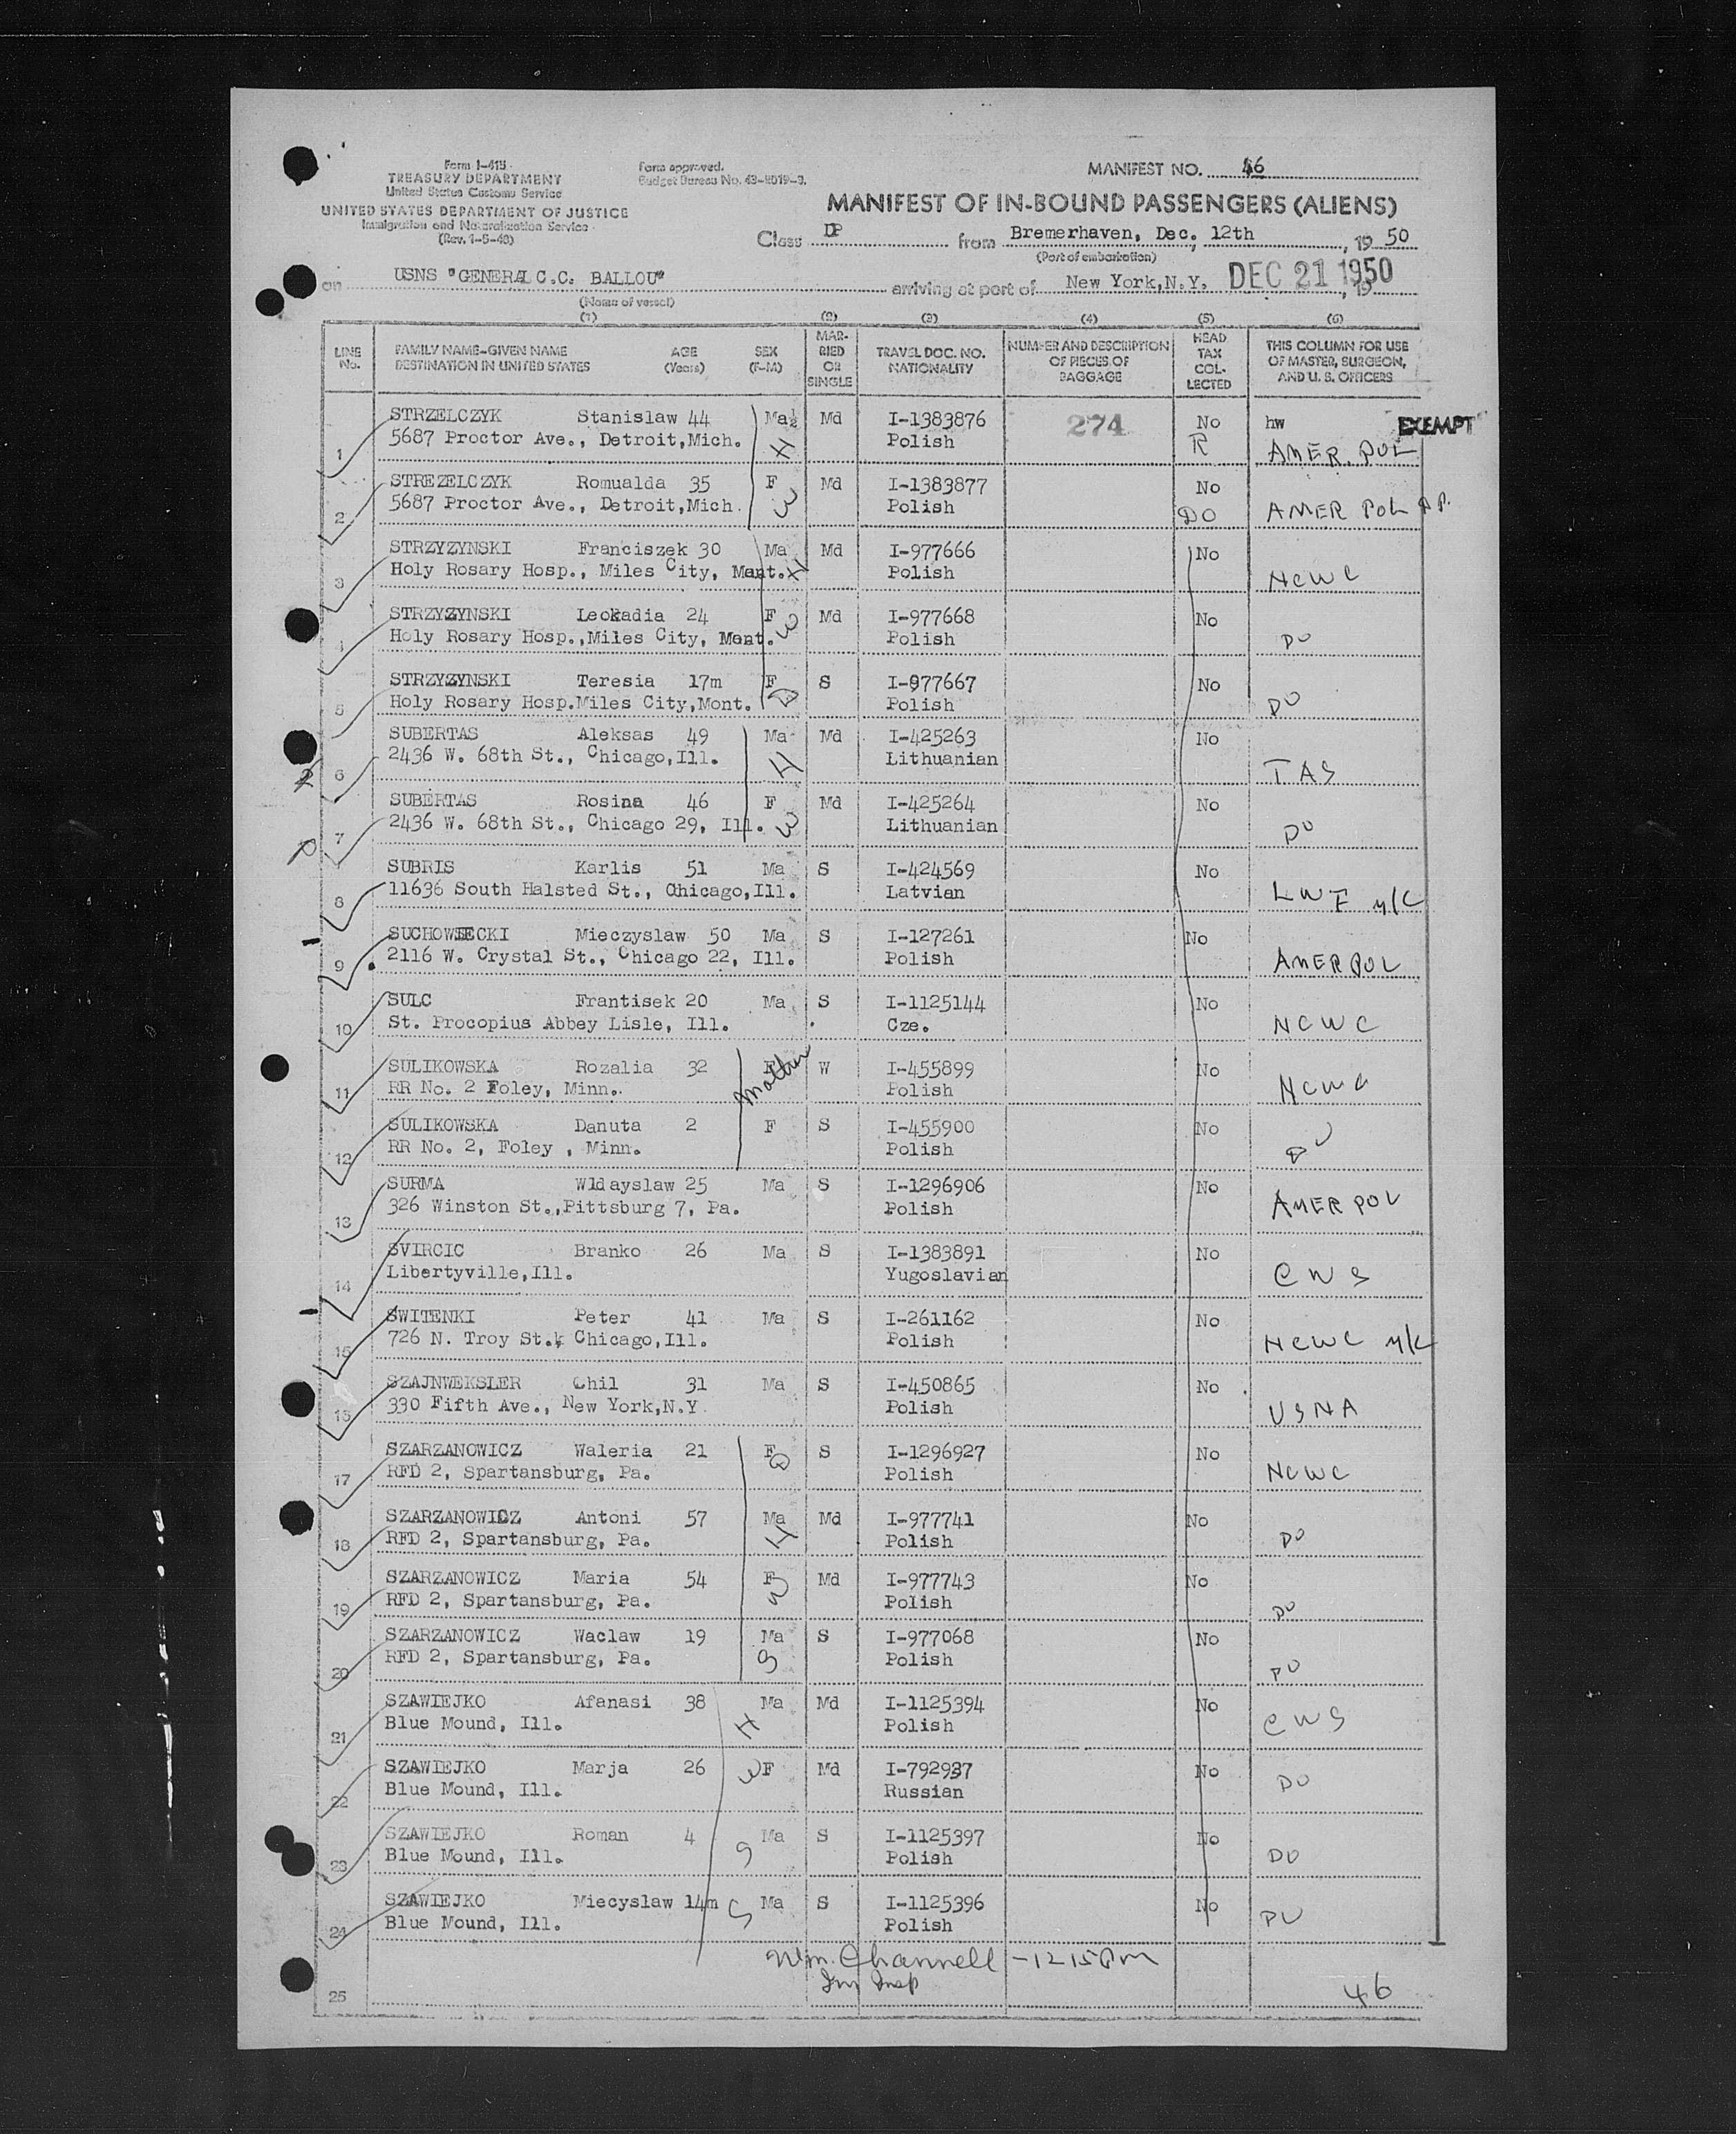 Form I-415
TREASURY DEPARTMENT
United States Customs Service
UNITED STATES DEPARTMENT OF JUSTICE
Immigration and Naturalization Service
(Rev. 1-5-48)
Form approved.
Budget Bureau No. 43-R019-3.
MANIFEST NO. 46
MANIFEST OF IN-BOUND PASSENGERS (ALIENS)
Class DP from Bremerhaven, Dec. 12th, 19 50
(Port of embarkation)
on USNS "GENERAL C.C. BALLOU" arriving at port of New York, N.Y. DEC 21 1950, 19
(Name of vessel)
(1) (2) (3) (4) (5) (6)
LINE No. FAMILY NAME-GIVEN NAME DESTINATION IN UNITED STATES AGE (Years) SEX (F-M) MARRIED OR SINGLE TRAVEL DOC. NO. NATIONALITY NUMBER AND DESCRIPTION OF PIECES OF BAGGAGE HEAD TAX COLLECTED THIS COLUMN FOR USE OF MASTER, SURGEON, AND U. S. OFFICERS
1 STRZELCZYK Stanislaw 44 Ma H Md I-1383876 274 No hw EXEMPT
5687 Proctor Ave., Detroit,Mich. Polish R AMER. POL
2 STREZELCZYK Romualda 35 F W Md I-1383877 No
5687 Proctor Ave., Detroit,Mich. Polish DO AMER POL
3 STRZYZYNSKI Franciszek 30 Ma H Md I-977666 No
Holy Rosary Hosp., Miles City, Mont. Polish NCWC
4 STRZYZYNSKI Leokadia 24 F W Md I-977668 No
Holy Rosary Hosp.,Miles City, Mont. Polish DO
5 STRZYZYNSKI Teresia 17m F D S I-977667 No
Holy Rosary Hosp.Miles City,Mont. Polish DO
6 SUBERTAS Aleksas 49 Ma H Md I-425263 No
2436 W. 68th St., Chicago,Ill. Lithuanian TAS
7 SUBERTAS Rosina 46 F W Md I-425264 No
2436 W. 68th St., Chicago 29, Ill. Lithuanian DO
8 SUBRIS Karlis 51 Ma S I-424569 No
11636 South Halsted St., Chicago,Ill. Latvian LWF M/C
9 SUCHOWIECKI Mieczyslaw 50 Ma S I-127261 No
2116 W. Crystal St., Chicago 22, Ill. Polish AMER POL
10 SULC Frantisek 20 Ma S I-1125144 No
St. Procopius Abbey Lisle, Ill. Cze. NCWC
11 SULIKOWSKA Rozalia 32 F Mother W I-455899 No
RR No. 2 Foley, Minn. Polish NCWC
12 SULIKOWSKA Danuta 2 F S I-455900 No
RR No. 2, Foley , Minn. Polish DO
13 SURMA Wldayslaw 25 Ma S I-1296906 No
326 Winston St.,Pittsburg 7, Pa. Polish AMER POL
14 SVIRCIC Branko 26 Ma S I-1383891 No
Libertyville,Ill. Yugoslavian CWS
15 SWITENKI Peter 41 Ma S I-261162 No
726 N. Troy St., Chicago,Ill. Polish NCWC M/C
16 SZAJNWEKSLER Chil 31 Ma S I-450865 No
330 Fifth Ave., New York,N.Y. Polish USNA
17 SZARZANOWICZ Waleria 21 F D S I-1296927 No
RFD 2, Spartansburg, Pa. Polish NCWC
18 SZARZANOWICZ Antoni 57 Ma H Md I-977741 No
RFD 2, Spartansburg, Pa. Polish DO
19 SZARZANOWICZ Maria 54 F W Md I-977743 No
RFD 2, Spartansburg, Pa. Polish DO
20 SZARZANOWICZ Waclaw 19 Ma S S I-977068 No
RFD 2, Spartansburg, Pa. Polish DO
21 SZAWIEJKO Afanasi 38 H Ma Md I-1125394 No
Blue Mound, Ill. Polish CWS
22 SZAWIEJKO Marja 26 W F Md I-792937 No
Blue Mound, Ill. Russian DO
23 SZAWIEJKO Roman 4 S Ma S I-1125397 No
Blue Mound, Ill. Polish DO
24 SZAWIEJKO Miecyslaw 14m S Ma S I-1125396 No
Blue Mound, Ill. Polish DO
Wm. Channell - 12 15 Pm
Im Insp
25 46